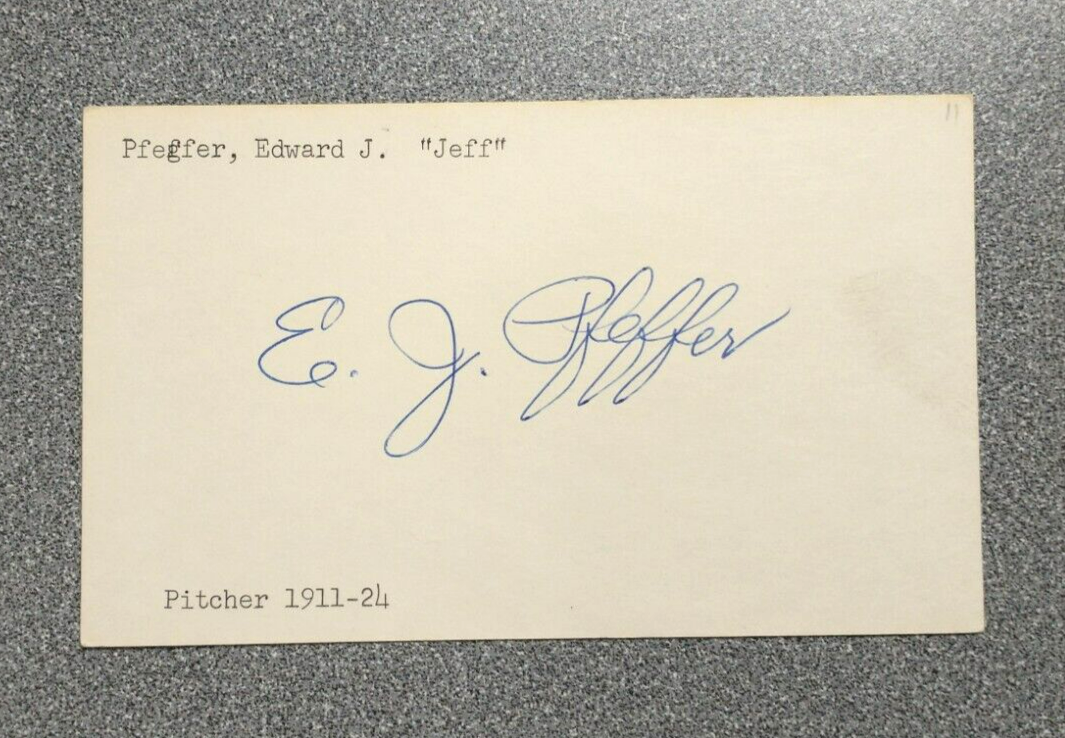 Pfeffer, Edward J. "Jeff"
E. J. Pfeffer
Pitcher 1911-24